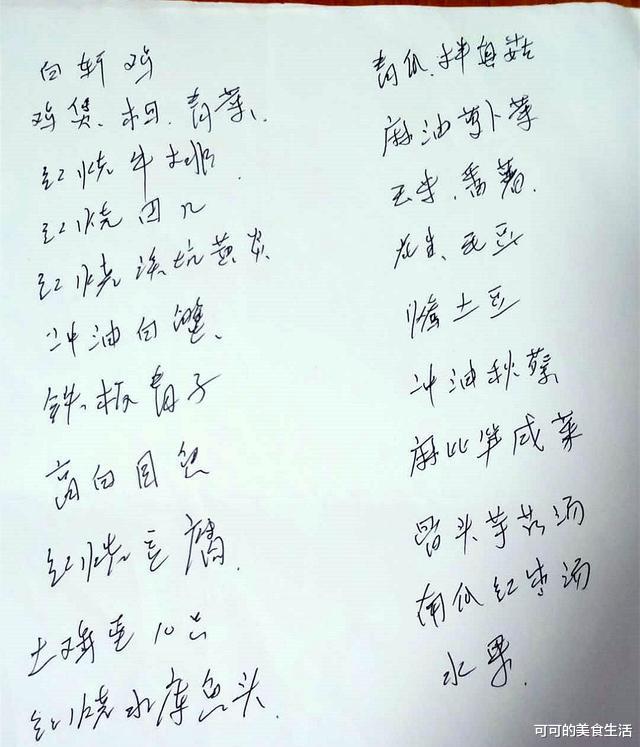 白斩鸡
鸡煲、青菜、
红烧牛排.
红烧
红烧溪坑黄
油白蟹、
铁板青子
高白
红烧豆腐.
土鸡蛋10只
红烧水库鱼头.
青瓜、拌
麻油萝卜菜
玉米、番薯.
花生、毛豆
土豆
油秋葵
笋咸菜
骨头芋艿汤
南瓜红枣汤
水果.
可可的美食生活